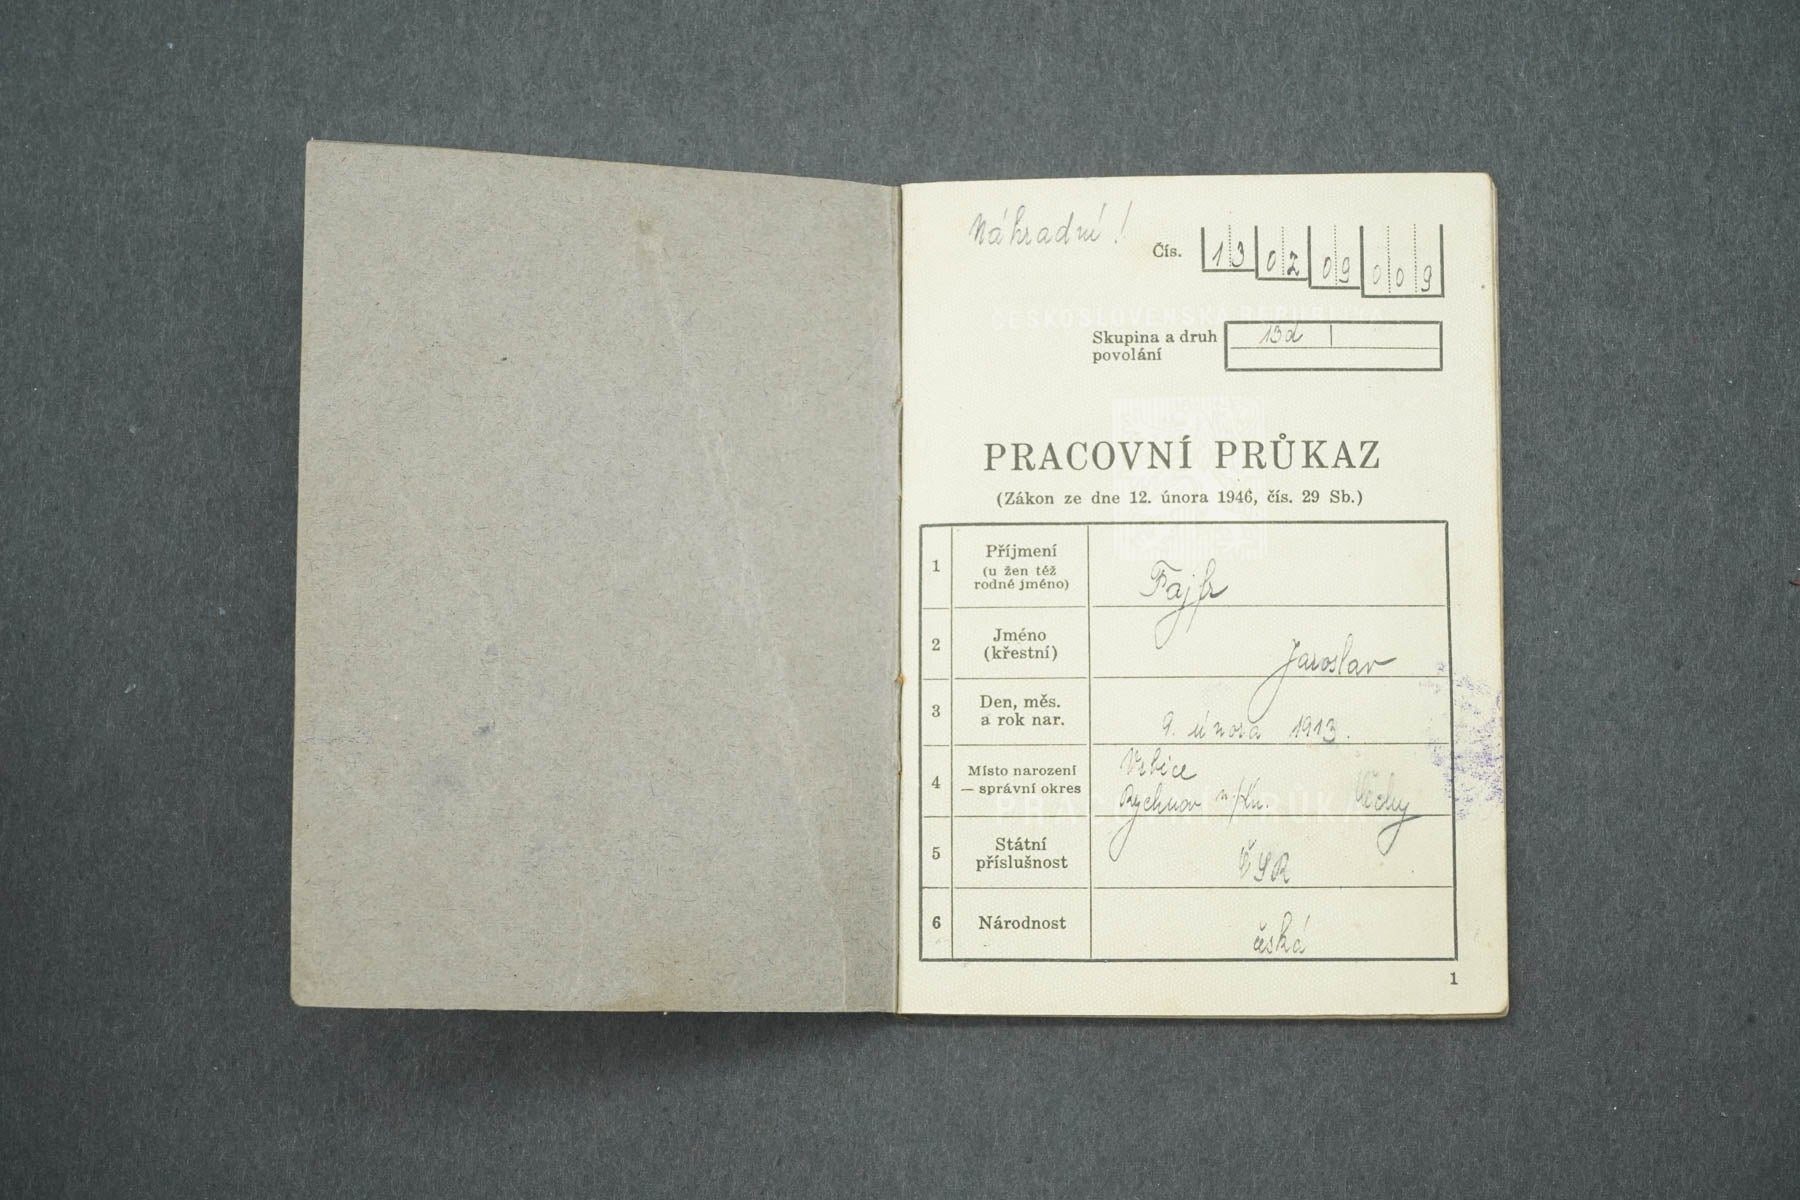 Náhradní!
Čís. 13 02 09 009
ČESKOSLOVENSKÁ REPUBLIKA
Skupina a druh povolání 13d
PRACOVNÍ PRŮKAZ
(Zákon ze dne 12. února 1946, čís. 29 Sb.)
1 Příjmení Fajfr
(u žen též
rodné jméno)
2 Jméno Jaroslav
(křestní)
3 Den, měs. 9. února 1913.
a rok nar.
4 Místo narození Vrbice
— správní okres Rychnov n./Kn. Čechy
PRACOVNÍ PRŮKAZ
5 Státní ČSR
příslušnost
6 Národnost česká
1